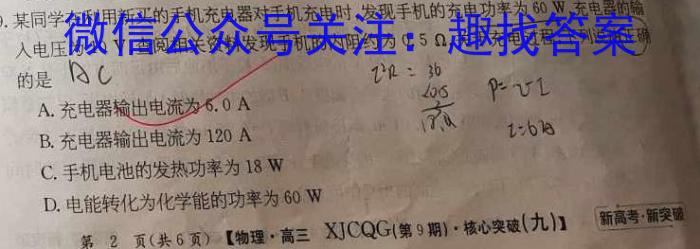 9. 某同学在用新买的手机充电器对手机充电时,发现手机的充电功率为 60 W,充电器的输
微信公众号关注:趣找答案
入电压为 V,查阅相关资料发现手机的内阻约为 0.5 Ω,
的是 AC
I²R = 36
P=UI
18W
I=6A
A. 充电器输出电流为 6.0 A
B. 充电器输出电流为 120 A
C. 手机电池的发热功率为 18 W
D. 电能转化为化学能的功率为 60 W
第 2 页(共 6 页) 【物理·高三 XJCQG(第 9 期)·核心突破(九)】 新高考·新突破